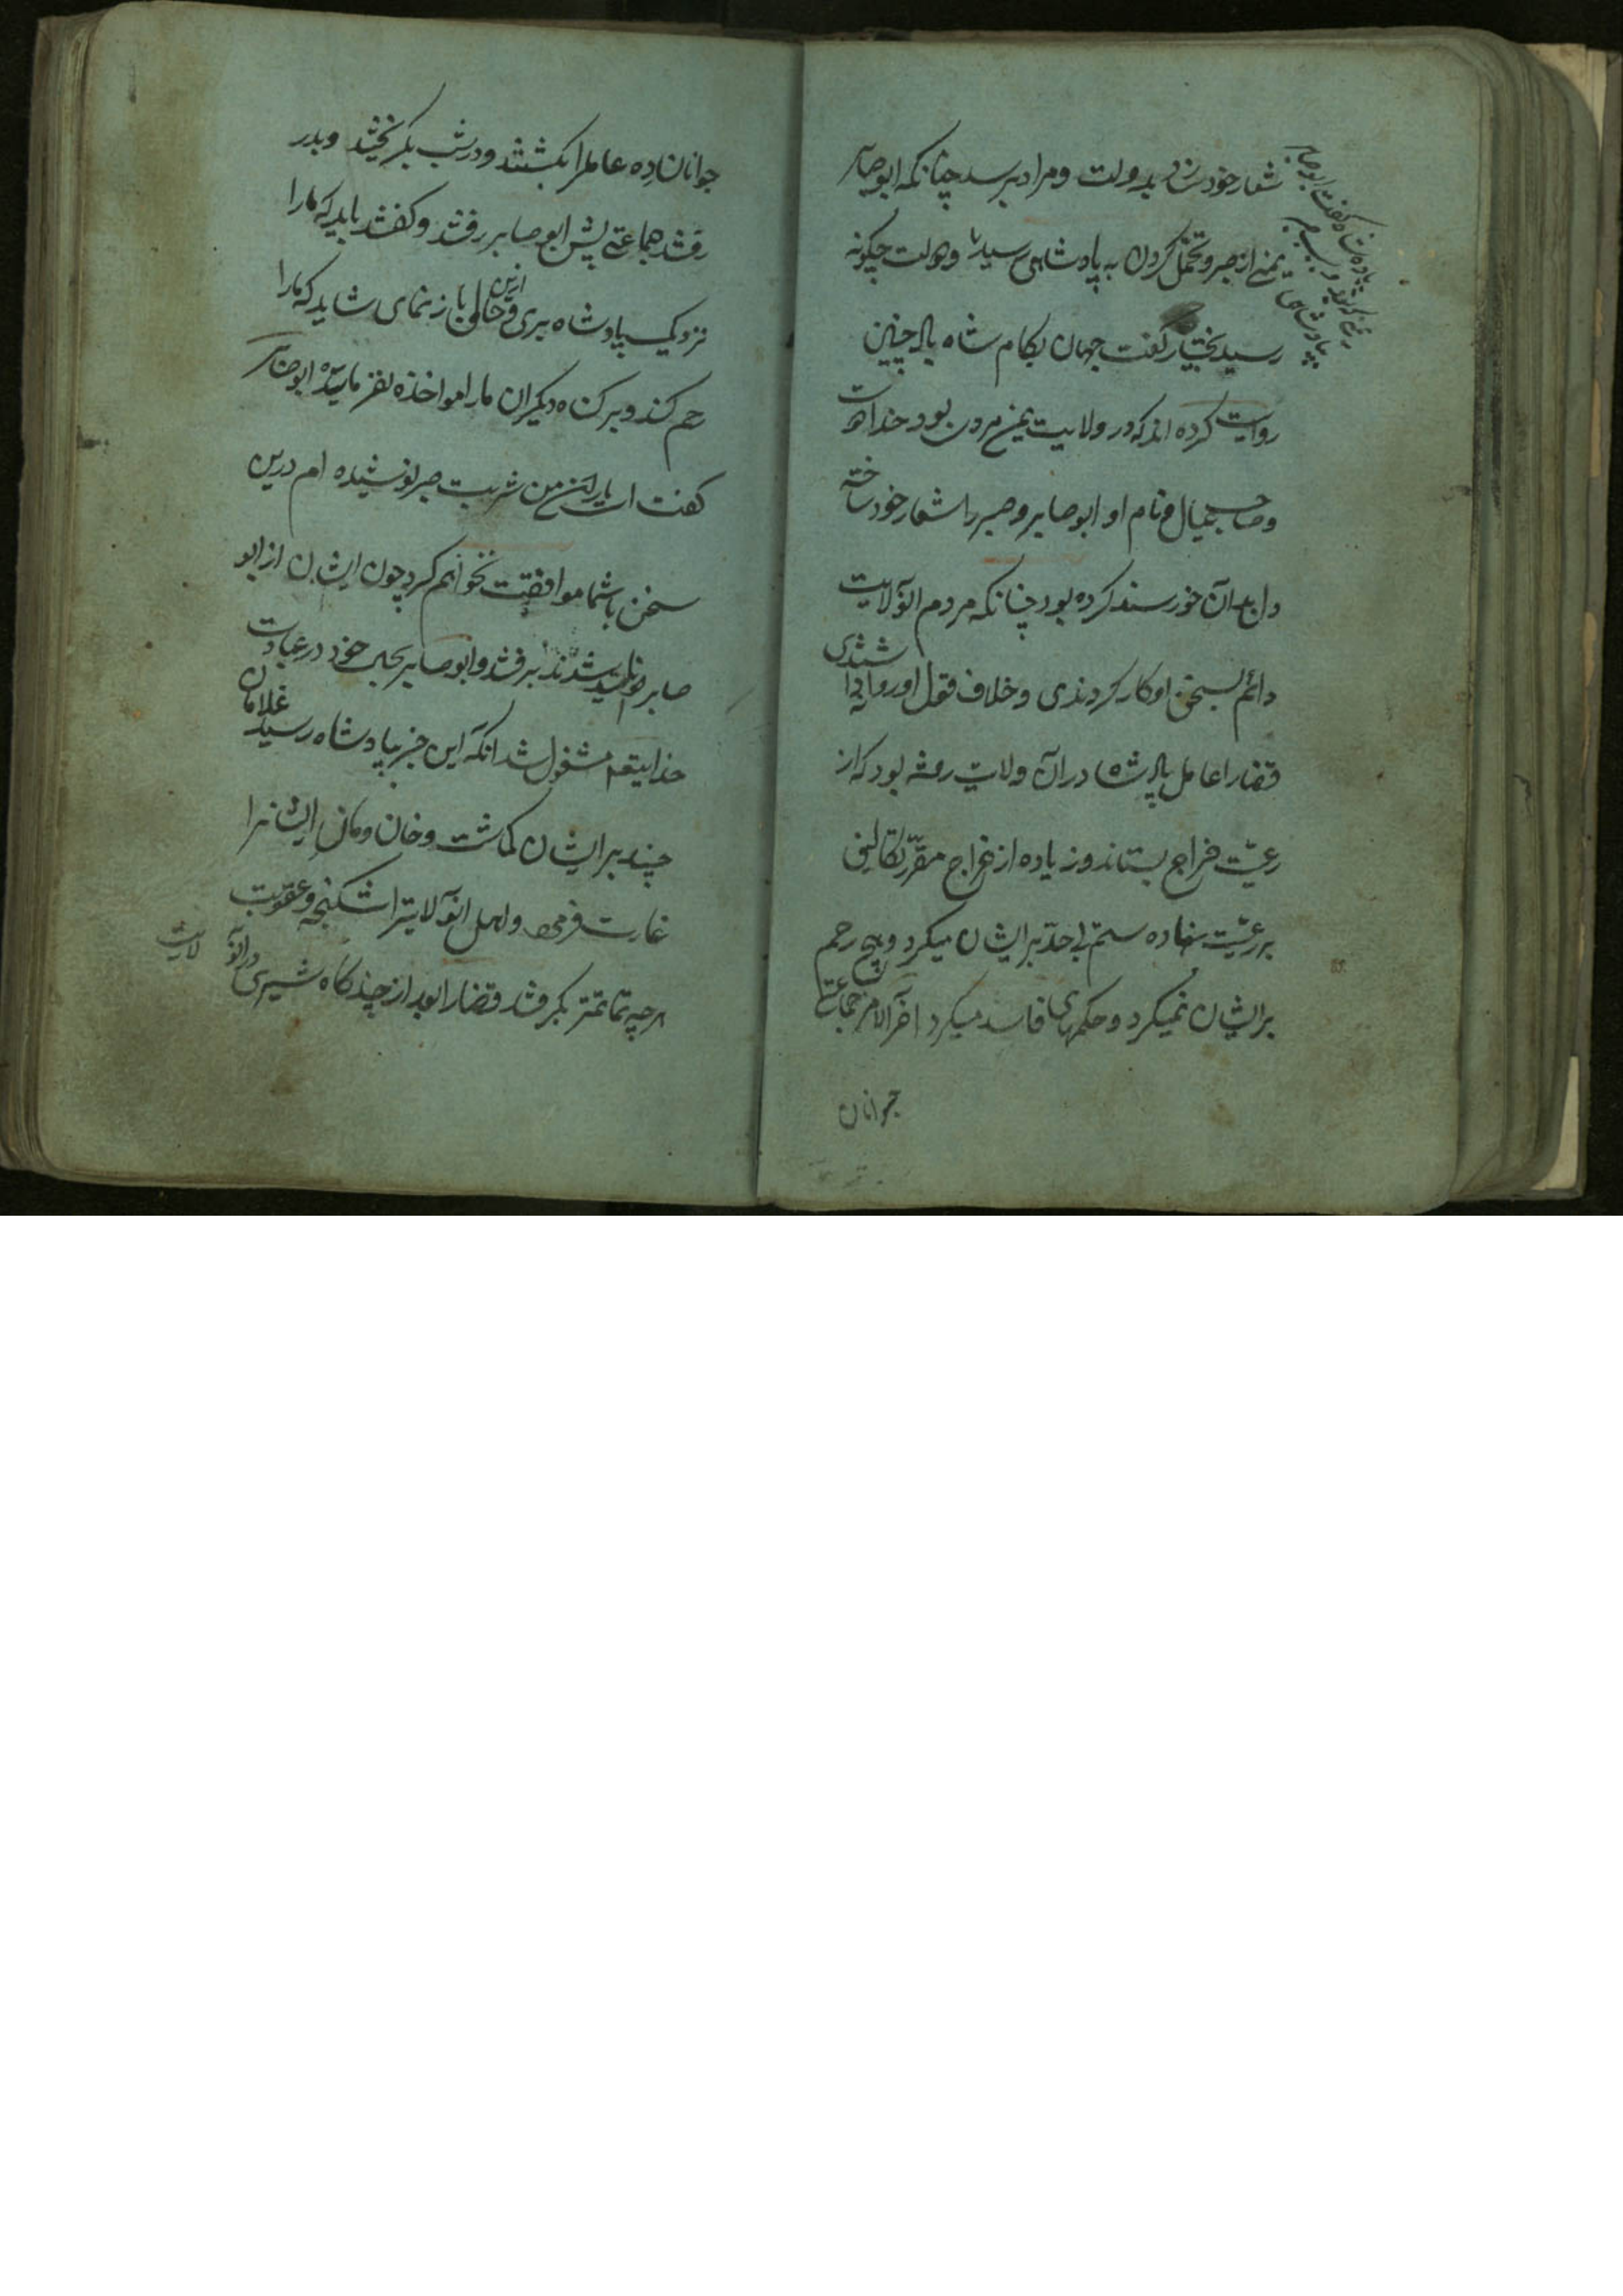 شعار خود سازد بدولت و مراد برسد چنانکه ابوصابر
یمنی از صبر و تحمل کردن به پادشاهی رسید و دولت چگونه
رسید بختیار گفت جهان بکام شاه باد چنین
روایت کرده اند که در ولایت یمن مردی بود خداپرست
و صاحب عیال و نام او ابوصابر و صبر را شعار خود ساخته
دل بدان خورسند کرده بود چنانکه مردم انولایت
دائم بسخن او کار کردندی و خلاف قول او روا نداشتندی
قضارا عامل پادشاه دران ولایت رفته بود که از
رعیت خراج بستاند و زیاده از خراج مقرر تکالیف
بر رعیت نهاده ستم بی حد بر ایشان میکرد و هیچ رحم
بر ایشان نمیکرد و حکمهای فاسد میکرد آخر الامر جماعتی
جوانان
پادشاه گفت ابوصابر
جوانان ده عامل را بکشتند و در شب بگریختند و بدر
رفتند جماعتی پیش ابوصابر رفتند و گفتند باید که ما را
نزدیک پادشاه بری و ازین حالی باز نمای شاید که ما را
رحم کند و بر گناه دیگران ما را مواخذه نفرماید ابوصابر
گفت ای یاران من شربت صبر نوشیده ام درین
سخن با شما موافقت نخواهم کرد چون ایشان از ابو
صابر نومید شدند برفتند و ابوصابر بجای خود در عبادت
خدایتعم مشغول شد انکه این خبر بپادشاه رسید غلامان
چند بر ایشان گماشت و خان و مان ایشانرا
غارت فرمود و اهل انولایترا شکنجه و عقوبت
هرچه تمامتر بگرفتند قضارا بعد از چندگاه شیری درانولایت